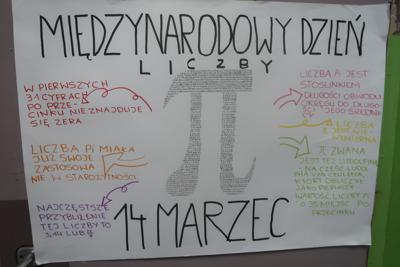 MIĘDZYNARODOWY DZIEŃ
LICZBY
π
W PIERWSZYCH
31 CYFRACH
PO PRZE-
CINKU NIE ZNAJDUJE
SIĘ ZERA
LICZBA Pi MIAŁA
JUŻ SWOJE
ZASTOSOWA
NIE W STAROŻYTNOŚCI
NAJCZĘSTSZE
PRZYBLIŻENIE
TEJ LICZBY TO
3,14 LUB
LICZBA π JEST
STOSUNKIEM
DŁUGOŚCI OBWODU
OKRĘGU DO DŁUGO-
ŚCI JEGO ŚREDNICY
LICZBA
π JEST NIE
WYMIERNA
π ZWANA
JEST TEŻ LUDOLFINĄ
- NA CZEŚĆ LUDOL
PHA VAN CEULENA,
KTÓRY OBLICZYŁ
JAKO PIERWSZY
WARTOŚĆ LICZBY π
O 35 MIEJSC PO
PRZECINKU
14 MARZEC